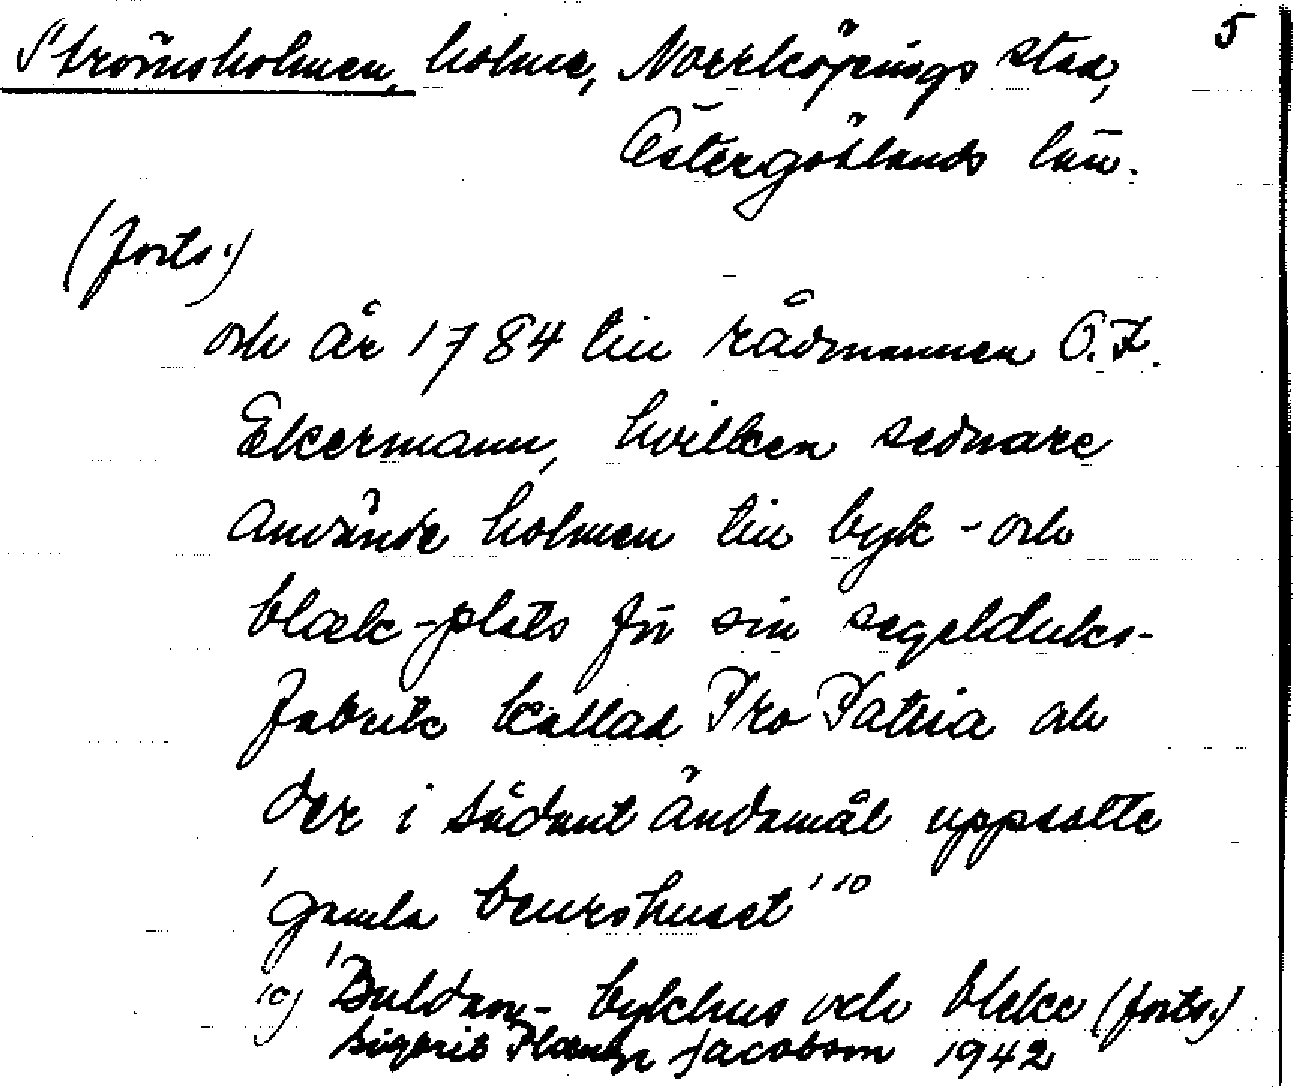 5
Strömsholmen, holme, Norrköpings stad,
Östergötlands län.
(forts.)
och år 1784 till rådmannen O.F.
Ekermann, hvilken sednare
använde holmen till byk- och
blek-plats för sin segelduks-
fabrik kallad Pro Patria och
der i sådant ändamål uppsatte
'gamla beurshuset' 10
10) 'Buldan- bykhus och bleke (forts.)
Jacobson 1942